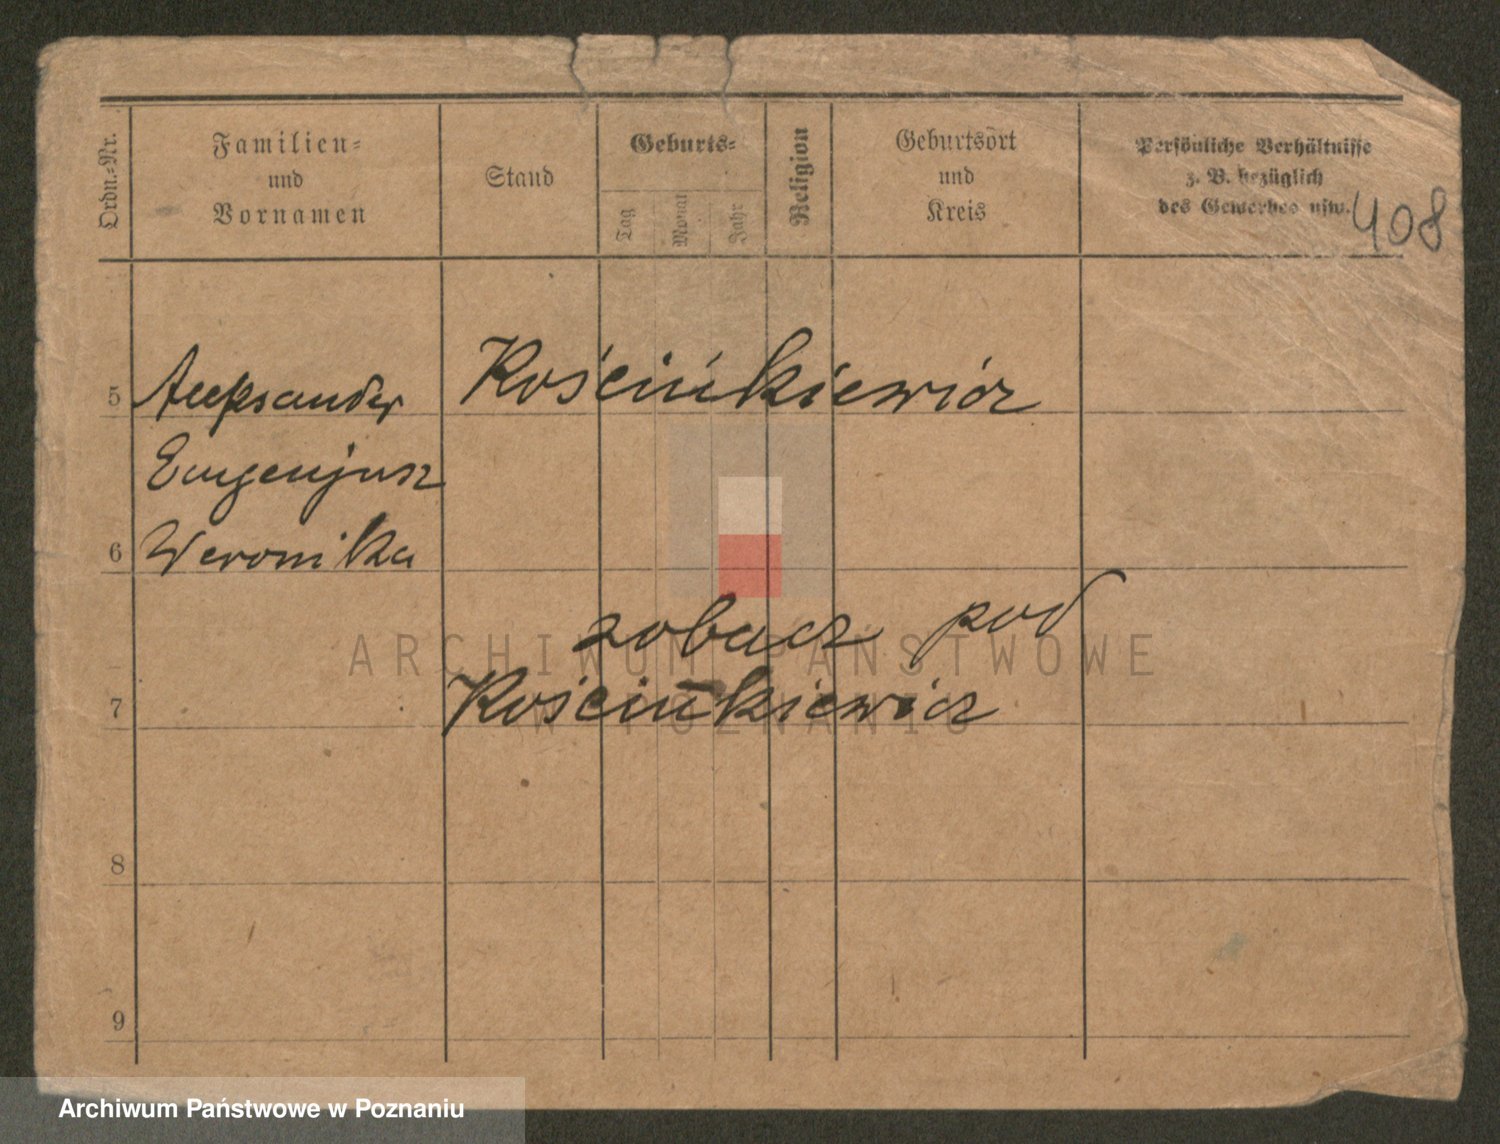 Ordn.-Nr.
Familien-
und
Vornamen
Stand
Geburts-
Tag
Monat
Jahr
Religion
Geburtsort
und
Kreis
Persönliche Verhältnisse
z. B. bezüglich
des Gewerbes usw.
408
5
Aleksander
Kościńkiewicz
Eugenjusz
6
Weronika
zobacz pod
7
Kościńkiewicz
8
9
ARCHIWUM PAŃSTWOWE
W POZNANIU
Archiwum Państwowe w Poznaniu